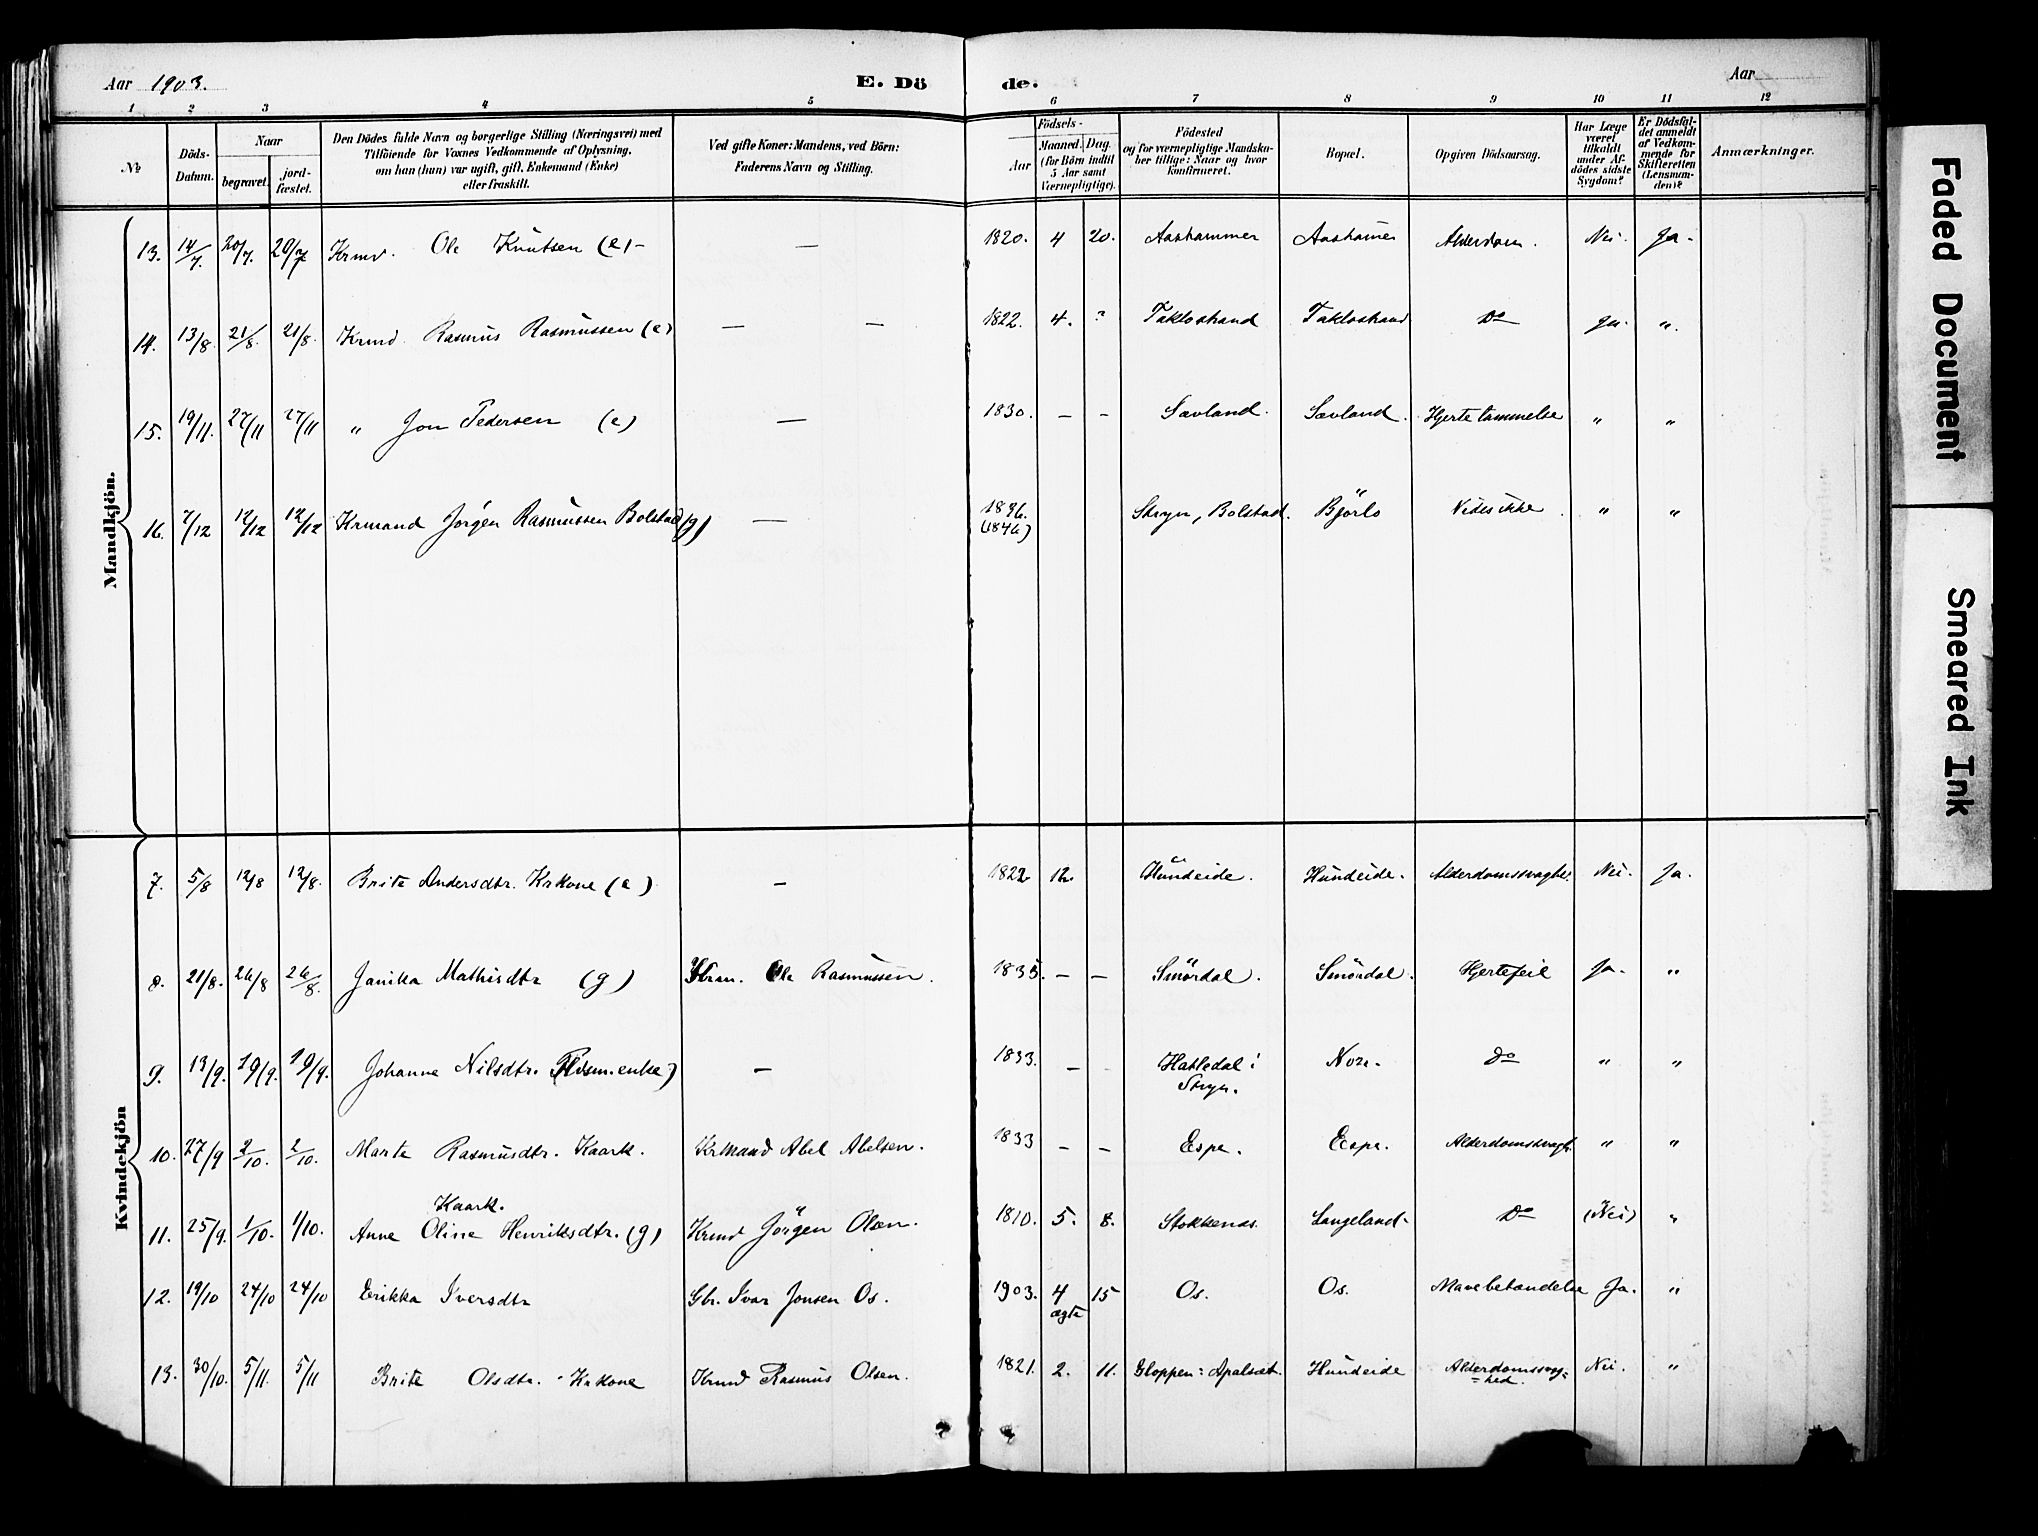 Aar 1903.
E. Dö
de.
Aar
1 2 3 4 5 6 7 8 9 10 11 12
№
Döds-Datum.
Naar
begravet.
jord-fæstet.
Den Dödes fulde Navn og borgerlige Stilling (Næringsvei) med
Tilföiende for Voxnes Vedkommende af Oplysning,
om han (hun) var ugift, gift, Enkemand (Enke)
eller fraskilt.
Ved gifte Koner: Mandens, ved Börn:
Faderens Navn og Stilling.
Födsels-
Aar
Maaned.
Dag.
(for Börn indtil
5 Aar samt
Værnepligtige).
Födested
og for værnepligtige Mandska-
ber tillige: Naar og hvor
konfirmeret.
Bopæl.
Opgiven Dödsaarsag.
Har Læge
været
tilkaldt
under Af-
dödes sidste
Sygdom?
Er Dödsfal-
det anmeldt
af Vedkom-
mende for
Skifteretten
(Lensman-
den)?
Anmærkninger.
Mandkjön.
13. 14/7. 20/7. 20/7 Krmd. Ole Knutsen (e) – — 1820. 4 20. Aashammer Aashamer Alderdom. Nei. Ja.
14. 13/8. 21/8. 21/8. Krmd. Rasmus Rasmussen (e) — — 1822. 4. ? Taklostrand Taklostrand Do Ja. ".
15. 19/11. 27/11 27/11 " Jon Pedersen (e) — 1830. – – Sævland. Sævland. Hjertelammelse " "
16. 7/12 12/12 12/12 Krmand Jörgen Rasmussen Bolstad (g) — 1836. (1846) Stryn, Bolstad. Björlo Vides ikke. " "
Kvindekjön
7. 5/8 12/8 12/8. Brite Andersdtr. Krkone (e) – 1822 12. Hundeide. Hundeide. Alderdomssvaghe. Nei. Ja.
8. 21/8. 26/8 26/8. Janika Mathisdtr (g) Ole Rasmussen. 1835. – – Smördal. Smördal. Hjertefeil Ja. "
9. 13/9. 19/9. 19/9. Johanne Nilsdtr. – 1833. – – Hatledal i Stryn. Nore. Do " "
10. 27/9 2/10. 2/10. Marte Rasmusdtr. Kaark. Krmand Abel Abelsen. 1833 – – Espe. Espe. Alderdomssvagh. " "
11. 25/9. 1/10. 1/10. Anne Oline Henriksdtr. Kaark. (g) Krmd Jörgen Olsen. 1810. 5. 8. Stokkenes. Langeland. Do (Nei) "
12. 19/10 24/10 24/10 Erikka Iversdtr Gbr. Ivar Jonsen Os. 1903. 4 ægte 15 Os. Os. Mavebetændelse Ja. "
13. 30/10. 5/11. 5/11 Brite Olsdtr. Krkone Krmd Rasmus Olsen. 1821. 2. 11. Gloppen: Apalsæt. Hundeide Alderdomssvag=
=hed. Nei. "
Faded Document
Smeared Ink